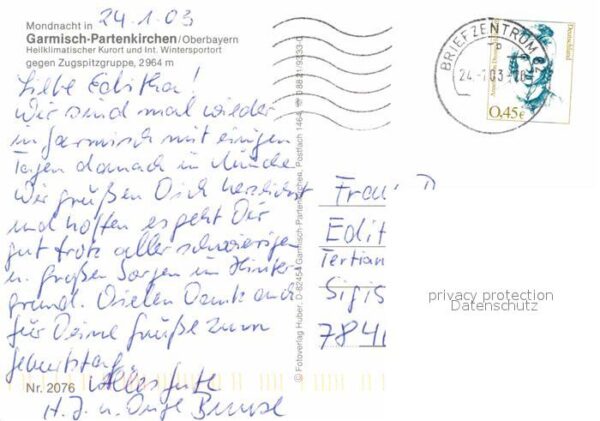 24.1.03
Mondnacht in
Garmisch-Partenkirchen/Oberbayern
Heilklimatischer Kurort und Int. Wintersportort
gegen Zugspitzgruppe, 2964 m
Liebe Editha!
Wir sind mal wieder
in Garmisch mit einigen
Tagen danach in
Wir grüßen Dich herzlichst
und hoffen es geht Dir
gut trotz aller schwierigen
u. großen Sorgen im Hinter-
grund. Vielen Dank auch
für Deine Grüße zum
Geburtstag. Alles Gute
Nr. 2076
H. J. u. Inge
© Fotoverlag Huber, D-82454 Garmisch-Partenkirchen, Postfach 1464
BRIEFZENTRUM 82
24.-1.03
Deutschland
0,45€
Frau
Edit
Tertian
Sigis
784
privacy protection
Datenschutz